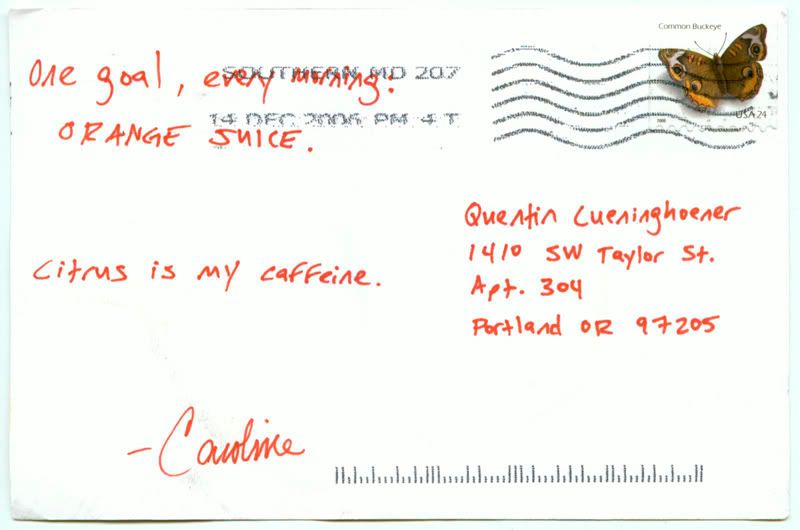 Common Buckeye
USA 24
SOUTHERN MD 207
14 DEC 2006 PM 4 T
One goal, every morning:
ORANGE JUICE.
Citrus is my caffeine.
- Caroline
Quentin Lueninghoener
1410 SW Taylor St.
Apt. 304
Portland OR 97205